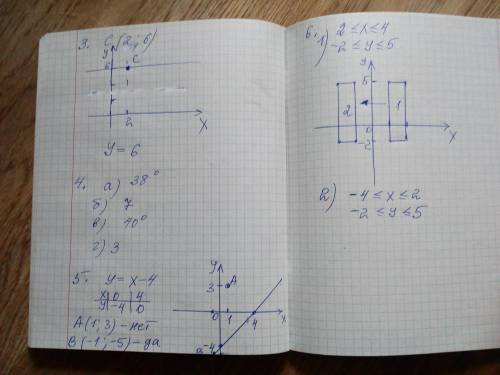 3. C(2; 6)
y
6
C
2
X
y = 6
4. а) 38°
б) 7
в) 40°
г) 3
5. y = x-4
x 0 4
y -4 0
A(1; 3) - нет
B(-1; -5) - да
y
3
A
0
1
4
x
-4
6. 1) 2 ≤ x ≤ 4
-2 ≤ y ≤ 5
y
5
2
1
0
x
-2
2) -4 ≤ x ≤ 2
-2 ≤ y ≤ 5